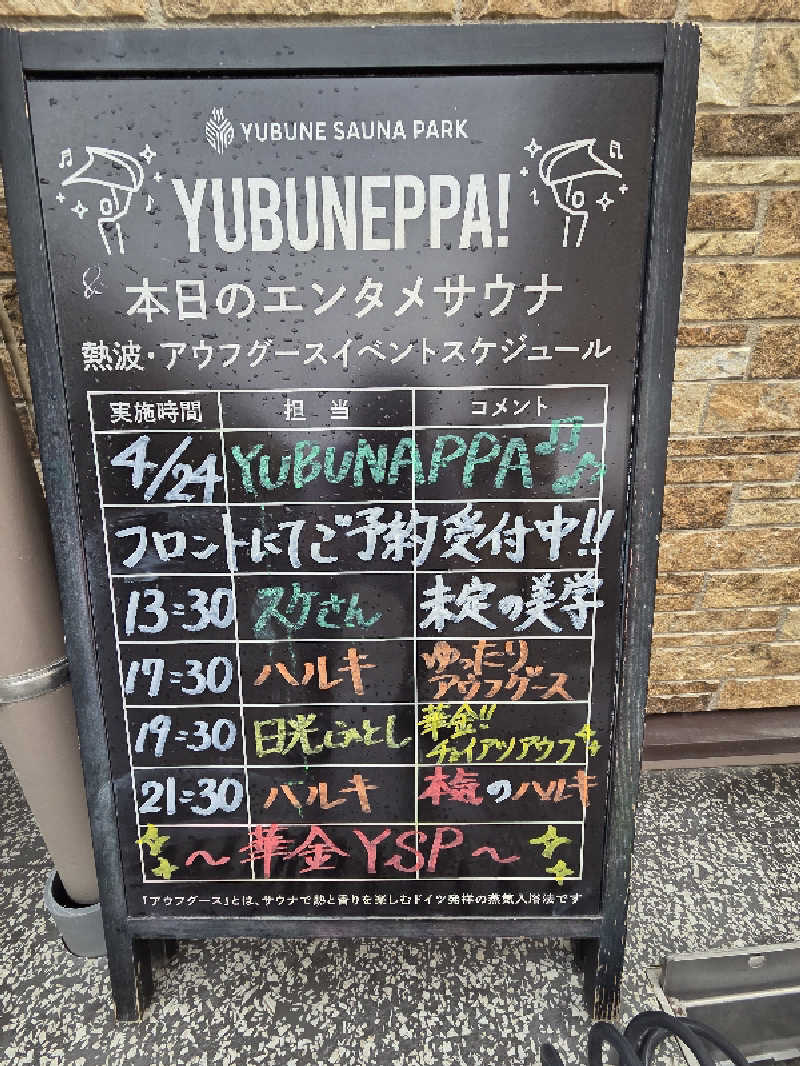 YUBUNE SAUNA PARK
YUBUNEPPA!
& 本日のエンタメサウナ
熱波・アウフグースイベントスケジュール
実施時間 担当 コメント
4/24 YUBUNAPPA♫♪
フロントにてご予約受付中!!
13:30 スケさん 未定の美学
17:30 ハルキ ゆったり
アウフグース
19:30 日光ひとし 華金!!
チョイアツアウフ
21:30 ハルキ 本気のハルキ
～華金YSP～
「アウフグース」とは、サウナで熱と香りを楽しむドイツ発祥の蒸気入浴法です